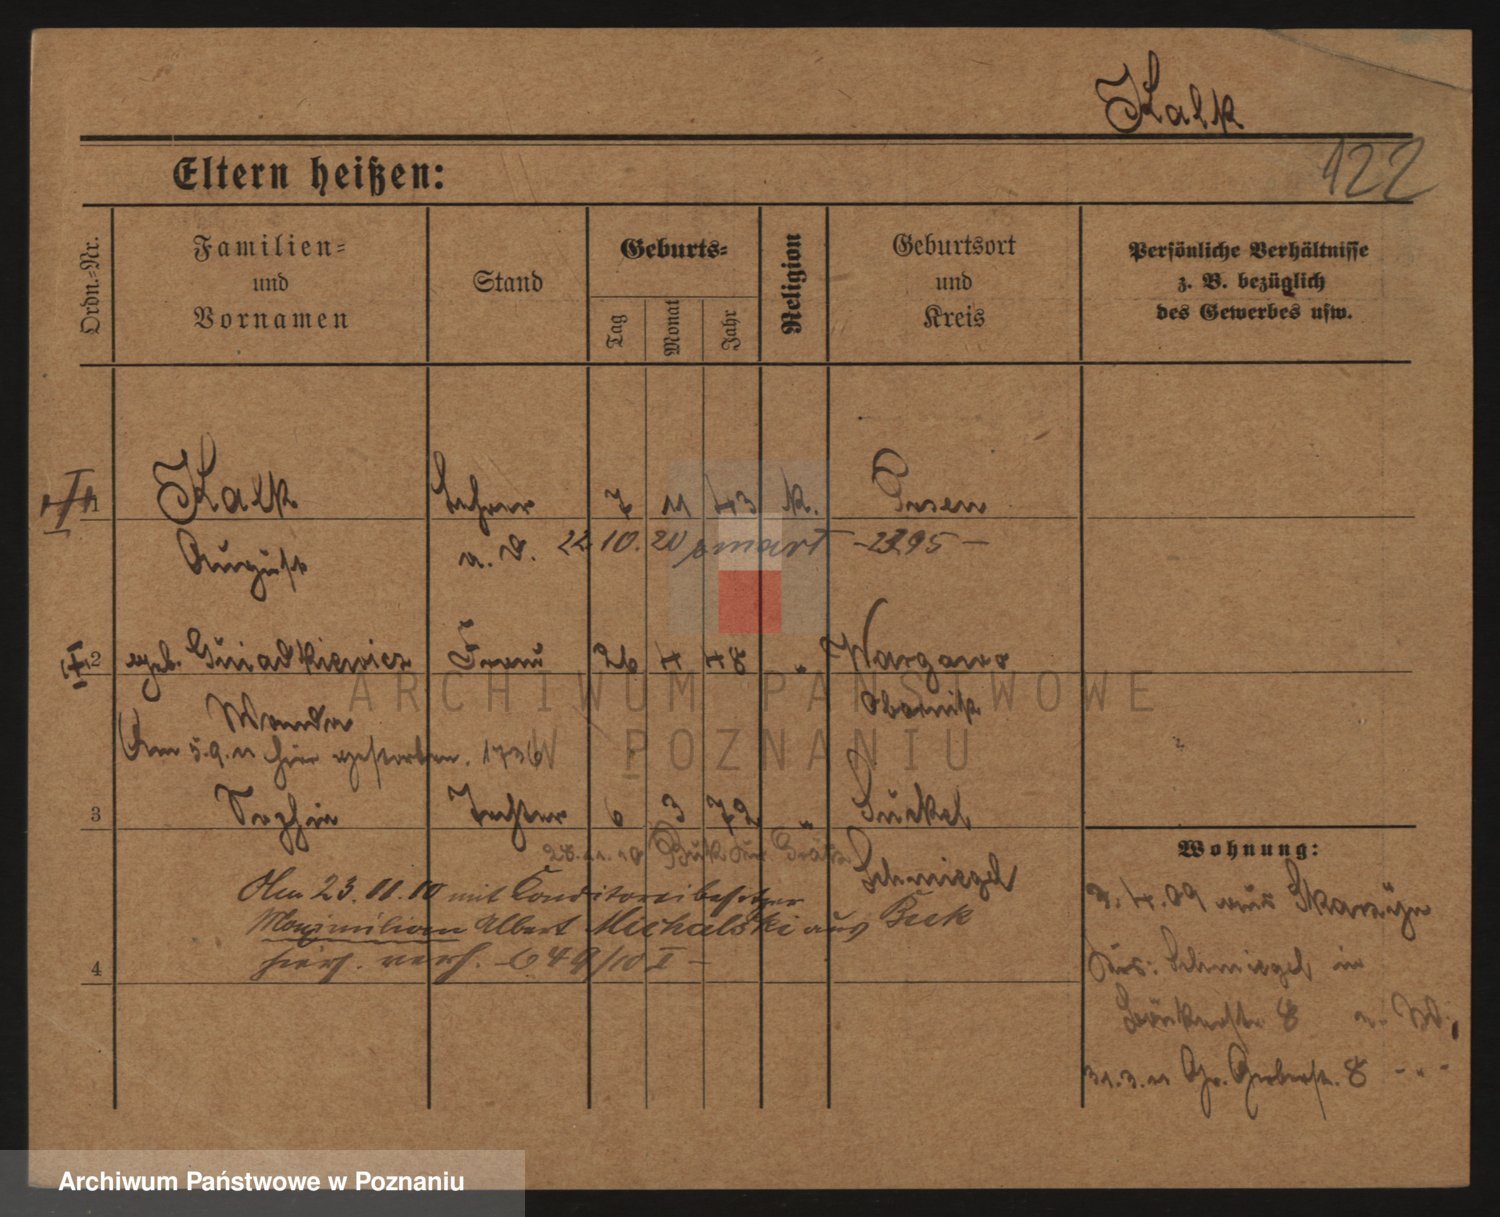 Kalk
122
Eltern heißen:
Ordn.-Nr.
Familien-
und
Vornamen
Stand
Geburts-
Tag
Monat
Jahr
Religion
Geburtsort
und
Kreis
Persönliche Verhältnisse
z. B. bezüglich
des Gewerbes usw.
1 Kalk Lehrer 7 11 43 k. Posen
August a. D. 22 10. 20
2 geb. Frau 26 4 48 " Wargowo
Wanda Obornik
Am 5.9.11 hier gestorben. 1736
3 Sophie Tochter 6 3 72 "
28.11.10 Buk Krs. Grätz
Schmiegel
Am 23.11.10 mit Conditoreibesitzer
Maximilian Albert Michalski aus Buk
hiers. verh. - 649/10 I -
4
Wohnung:
3.4.09 aus
Krs: Schmiegel in
8 n. W.
31.3.11 Gr. Gerberstr. 8 - " -
ARCHIWUM PAŃSTWOWE
W POZNANIU
Archiwum Państwowe w Poznaniu